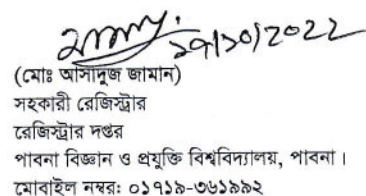 ১৭/১০/2022
(মোঃ আসাদুজ জামান)
সহকারী রেজিস্ট্রার
রেজিস্ট্রার দপ্তর
পাবনা বিজ্ঞান ও প্রযুক্তি বিশ্ববিদ্যালয়, পাবনা।
মোবাইল নম্বরঃ ০১৭১৯-৩৬১৯৯২